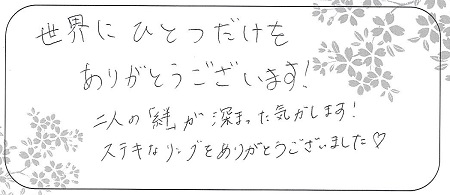 世界に ひとつだけを
ありがとうございます!
二人の「絆」が 深まった気がします!
ステキなリングをありがとうございました♡